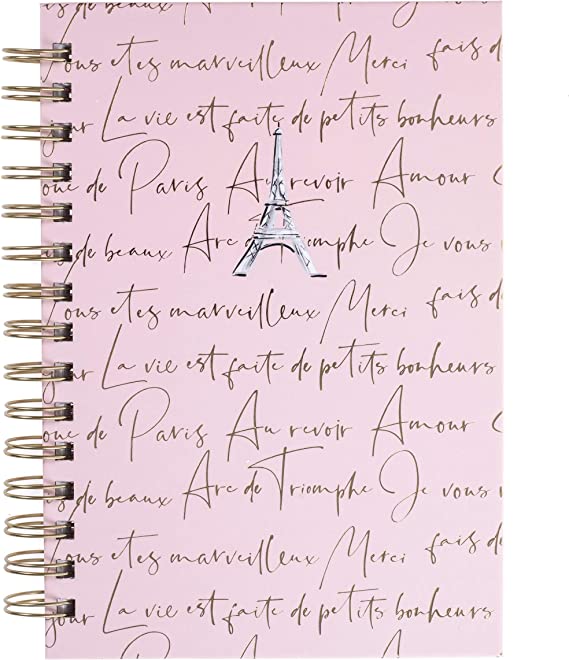 Vous etes marveilleux Merci fais de
jour La vie est faite de petits bonheurs
oue de Paris Au revoir Amour
is de beaux Arc de Triomphe Je vous
Vous etes marveilleux Merci fais de
jour La vie est faite de petits bonheurs
oue de Paris Au revoir Amour
is de beaux Arc de Triomphe Je vous
Vous etes marveilleux Merci fais de
jour La vie est faite de petits bonheurs